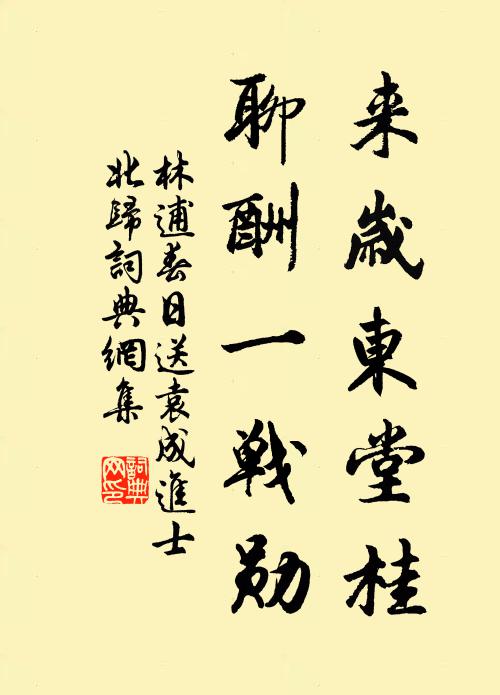 来歲東堂桂
聊酬一戰勛
林逋春日送袁成進士
北歸詞典網集
詞典
网印